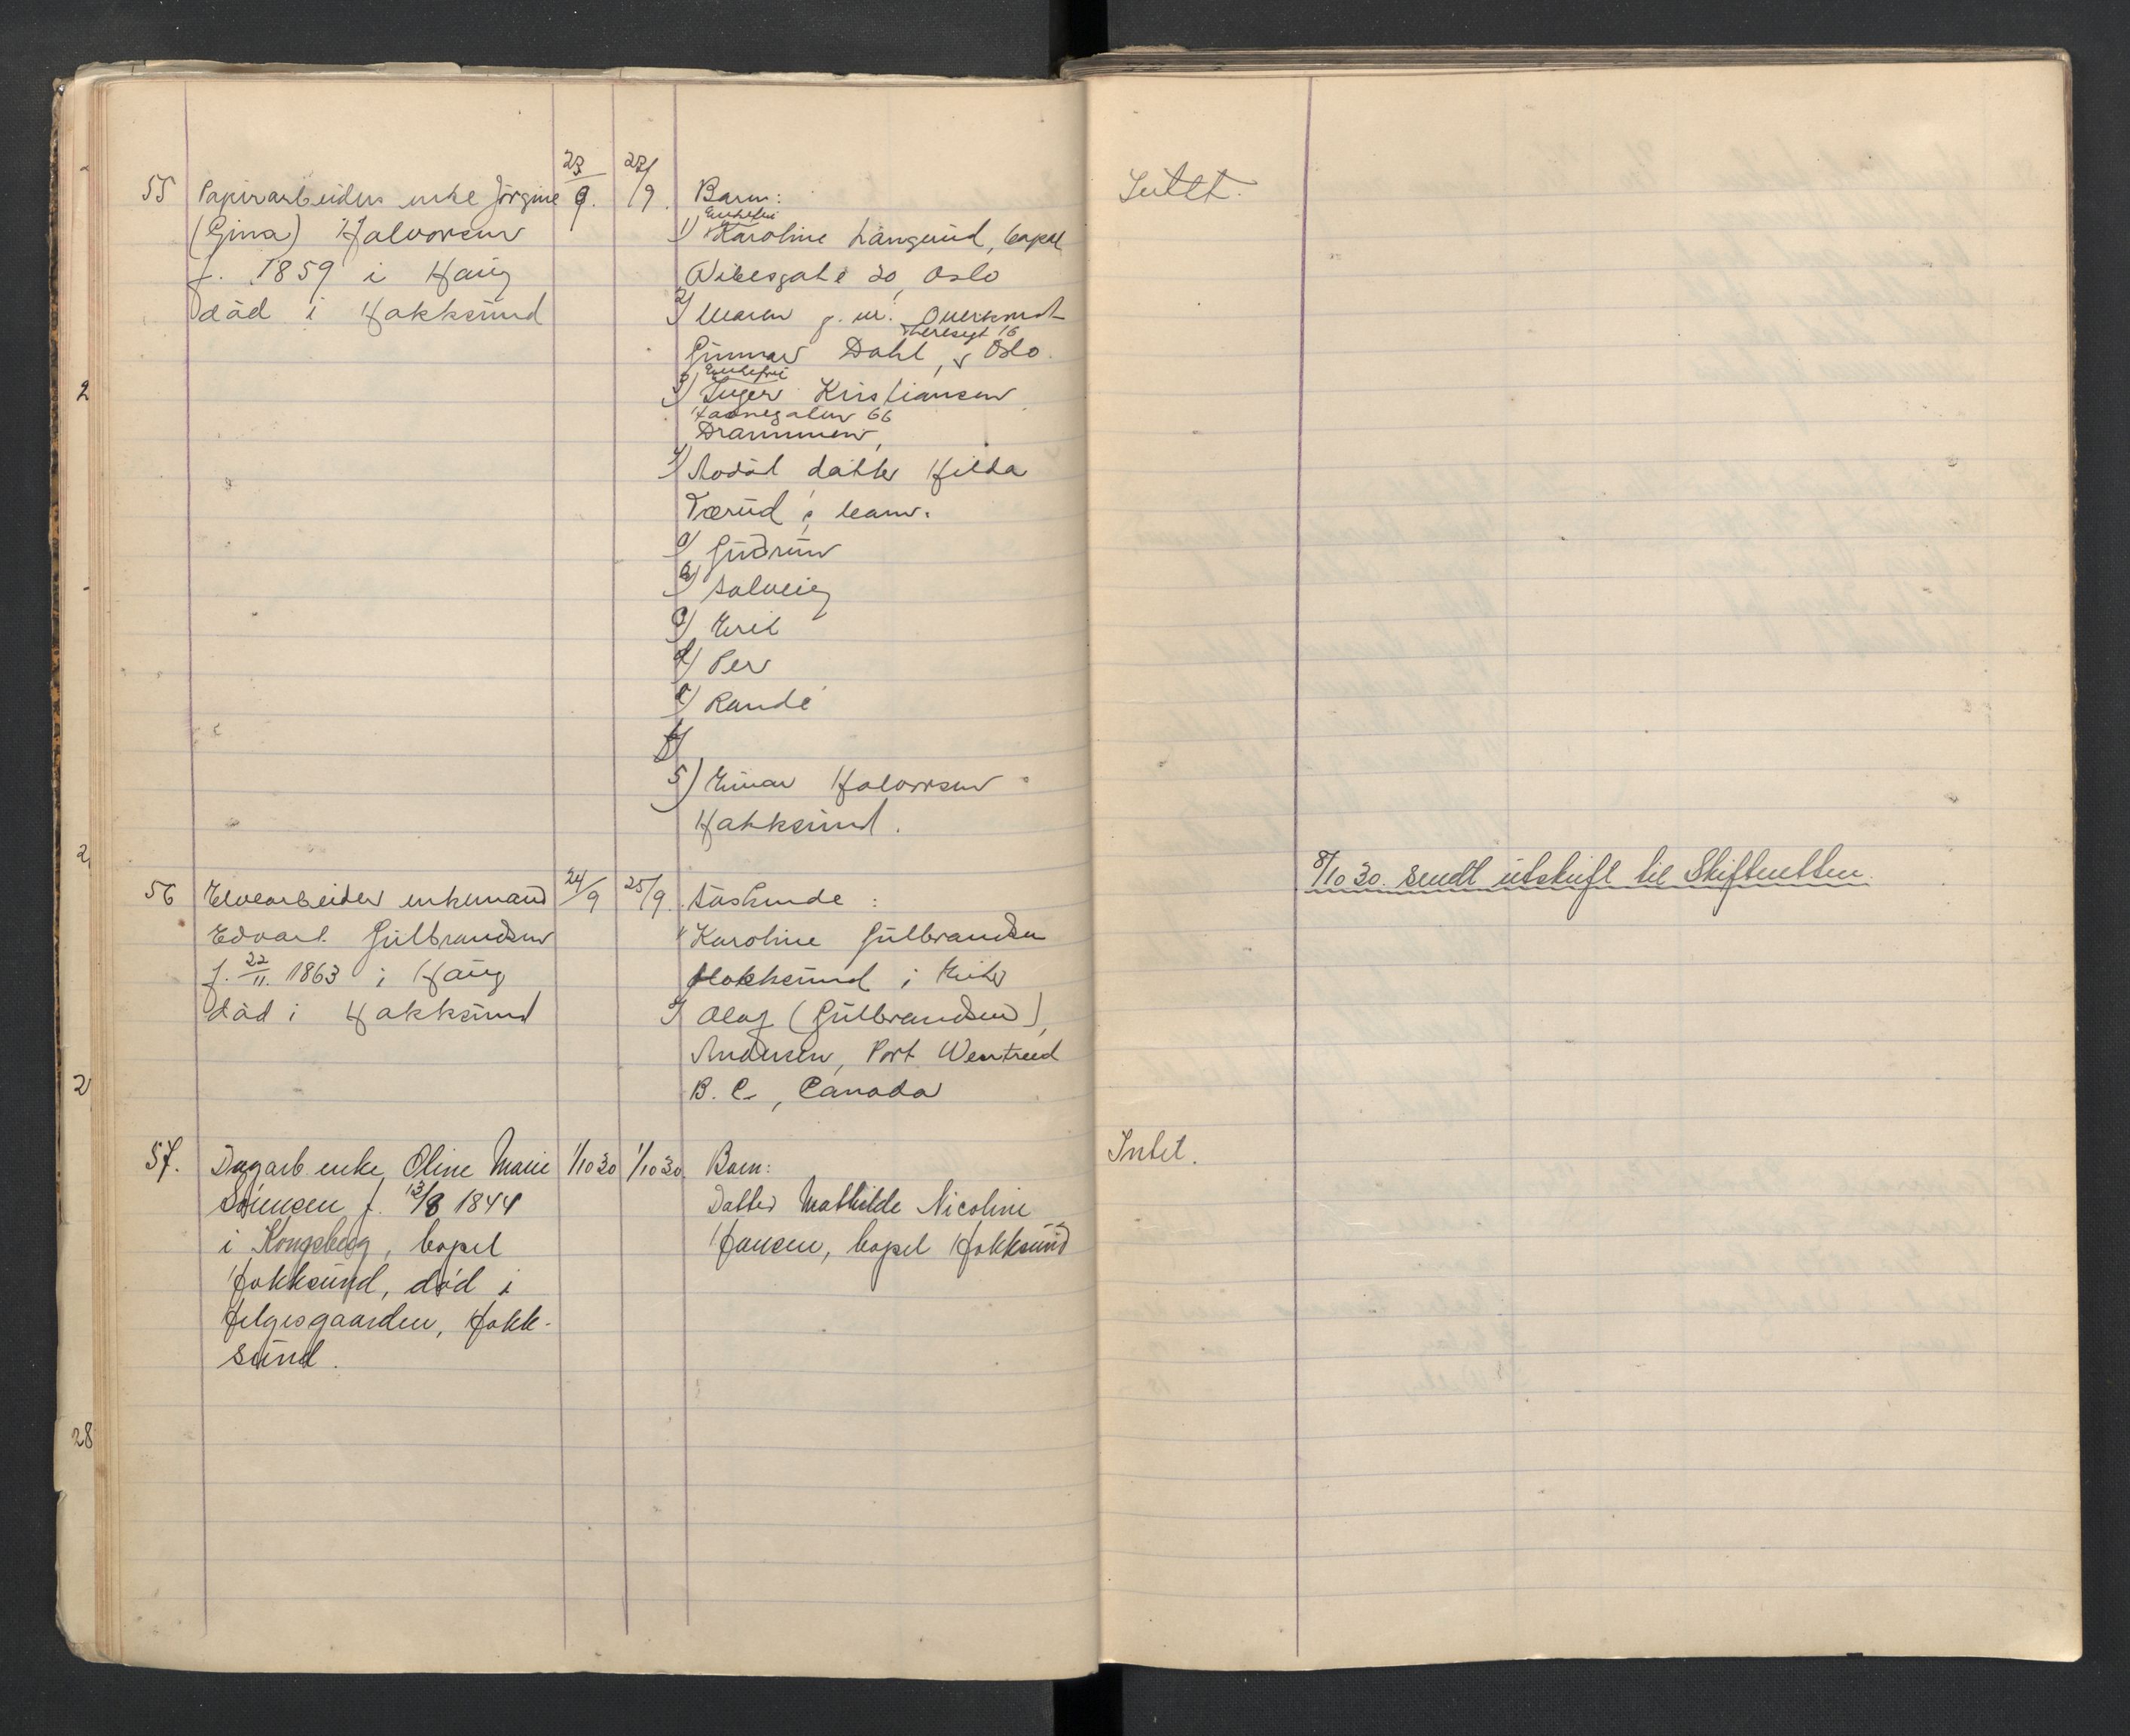 55 Papirarbeiders enke Jörgine 23/9. 23/9. Barn: Intet.
(Gina) Halvorsen
f. 1859 i Haug
död i Hokksund
Enkefru
1) Karoline Langerud, bopel
Wibesgate 20, Oslo
2) Maren g. m.
Theresegt 16
Gunnar Dahl, Oslo.
Enkefru
3) Inger Kristiansen
66
Drammen,
4) Avdöd datter Hilda
Tærud's barn.
a) Gudrun
b) Solveig
c) Erik
d) Per
e) Randi
f)
5) Einar Halvorsen
Hokksund.
56 Elvearbeider enkemand 24/9 25/9. Söskende: 8/10 30. sendt utskrift til Skifteretten.
Edvard Gulbrandsen
f. 22/11. 1863 i Haug
död i Hokksund
1) Karoline Gulbrandsen
Hokksund i Eiker
2) Olaf (Gulbrandsen),
Andersen, Port
B. C., Canada
57. Dagarb. enke Oline Marie 1/10 30 1/10 30. Barn: Intet.
Sörensen f. 13/8 1844
i Kongsberg, bopel
Hokksund, död i
Helgesgaarden, Hokk-
sund.
Datter Mathilde Nicoline
Hansen, bopel Hokksund
2
2
2
28